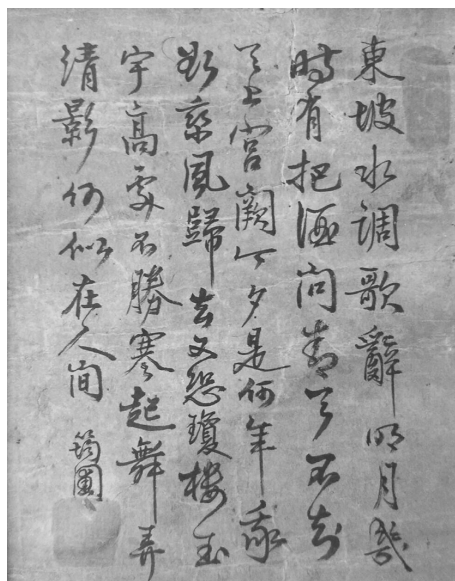 東坡水調歌辭明月幾
時有把酒問青天不知
天上宮闕今夕是何年我
欲乘風歸去又恐瓊樓玉
宇高處不勝寒起舞弄
清影何似在人間